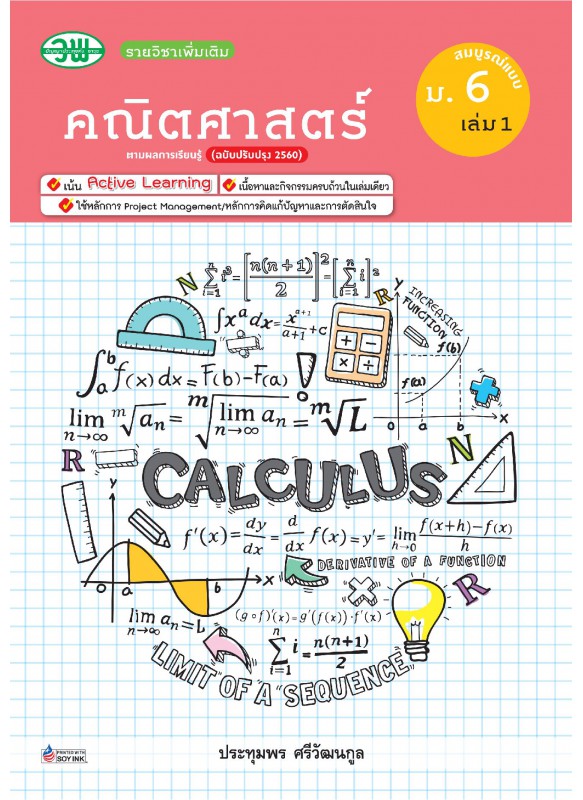 วพ
รายวิชาเพิ่มเติม
สมบูรณ์แบบ
ม. 6
เล่ม 1
คณิตศาสตร์
ตามผลการเรียนรู้ (ฉบับปรับปรุง 2560)
เน้น Active Learning เนื้อหาและกิจกรรมครบถ้วนในเล่มเดียว
ใช้หลักการ Project Management/หลักการคิดแก้ปัญหาและการตัดสินใจ
N
∑ⁿᵢ₌₁ i³ = [n(n+1)/2]² = [∑ⁿᵢ₌₁ i]²
R
y
INCREASING
FUNCTION
∫xᵃdx = xᵃ⁺¹/a+1 + c
f(b)
f(a)
∫ₐᵇ f(x)dx = F(b)-F(a)
0 a b x
lim n→∞ ᵐ√aₙ = ᵐ√lim n→∞ aₙ = ᵐ√L
R
N
CALCULUS
y
f'(x) = dy/dx = d/dx f(x) = y' = lim h→0 f(x+h)-f(x)/h
DERIVATIVE OF A FUNCTION
0 a b x
R
lim n→∞ aₙ = L
(g∘f)'(x) = g'(f(x))·f'(x)
∑ⁿᵢ₌₁ i = n(n+1)/2
LIMIT OF A SEQUENCE
ประทุมพร ศรีวัฒนกูล
PRINTED WITH
SOY INK